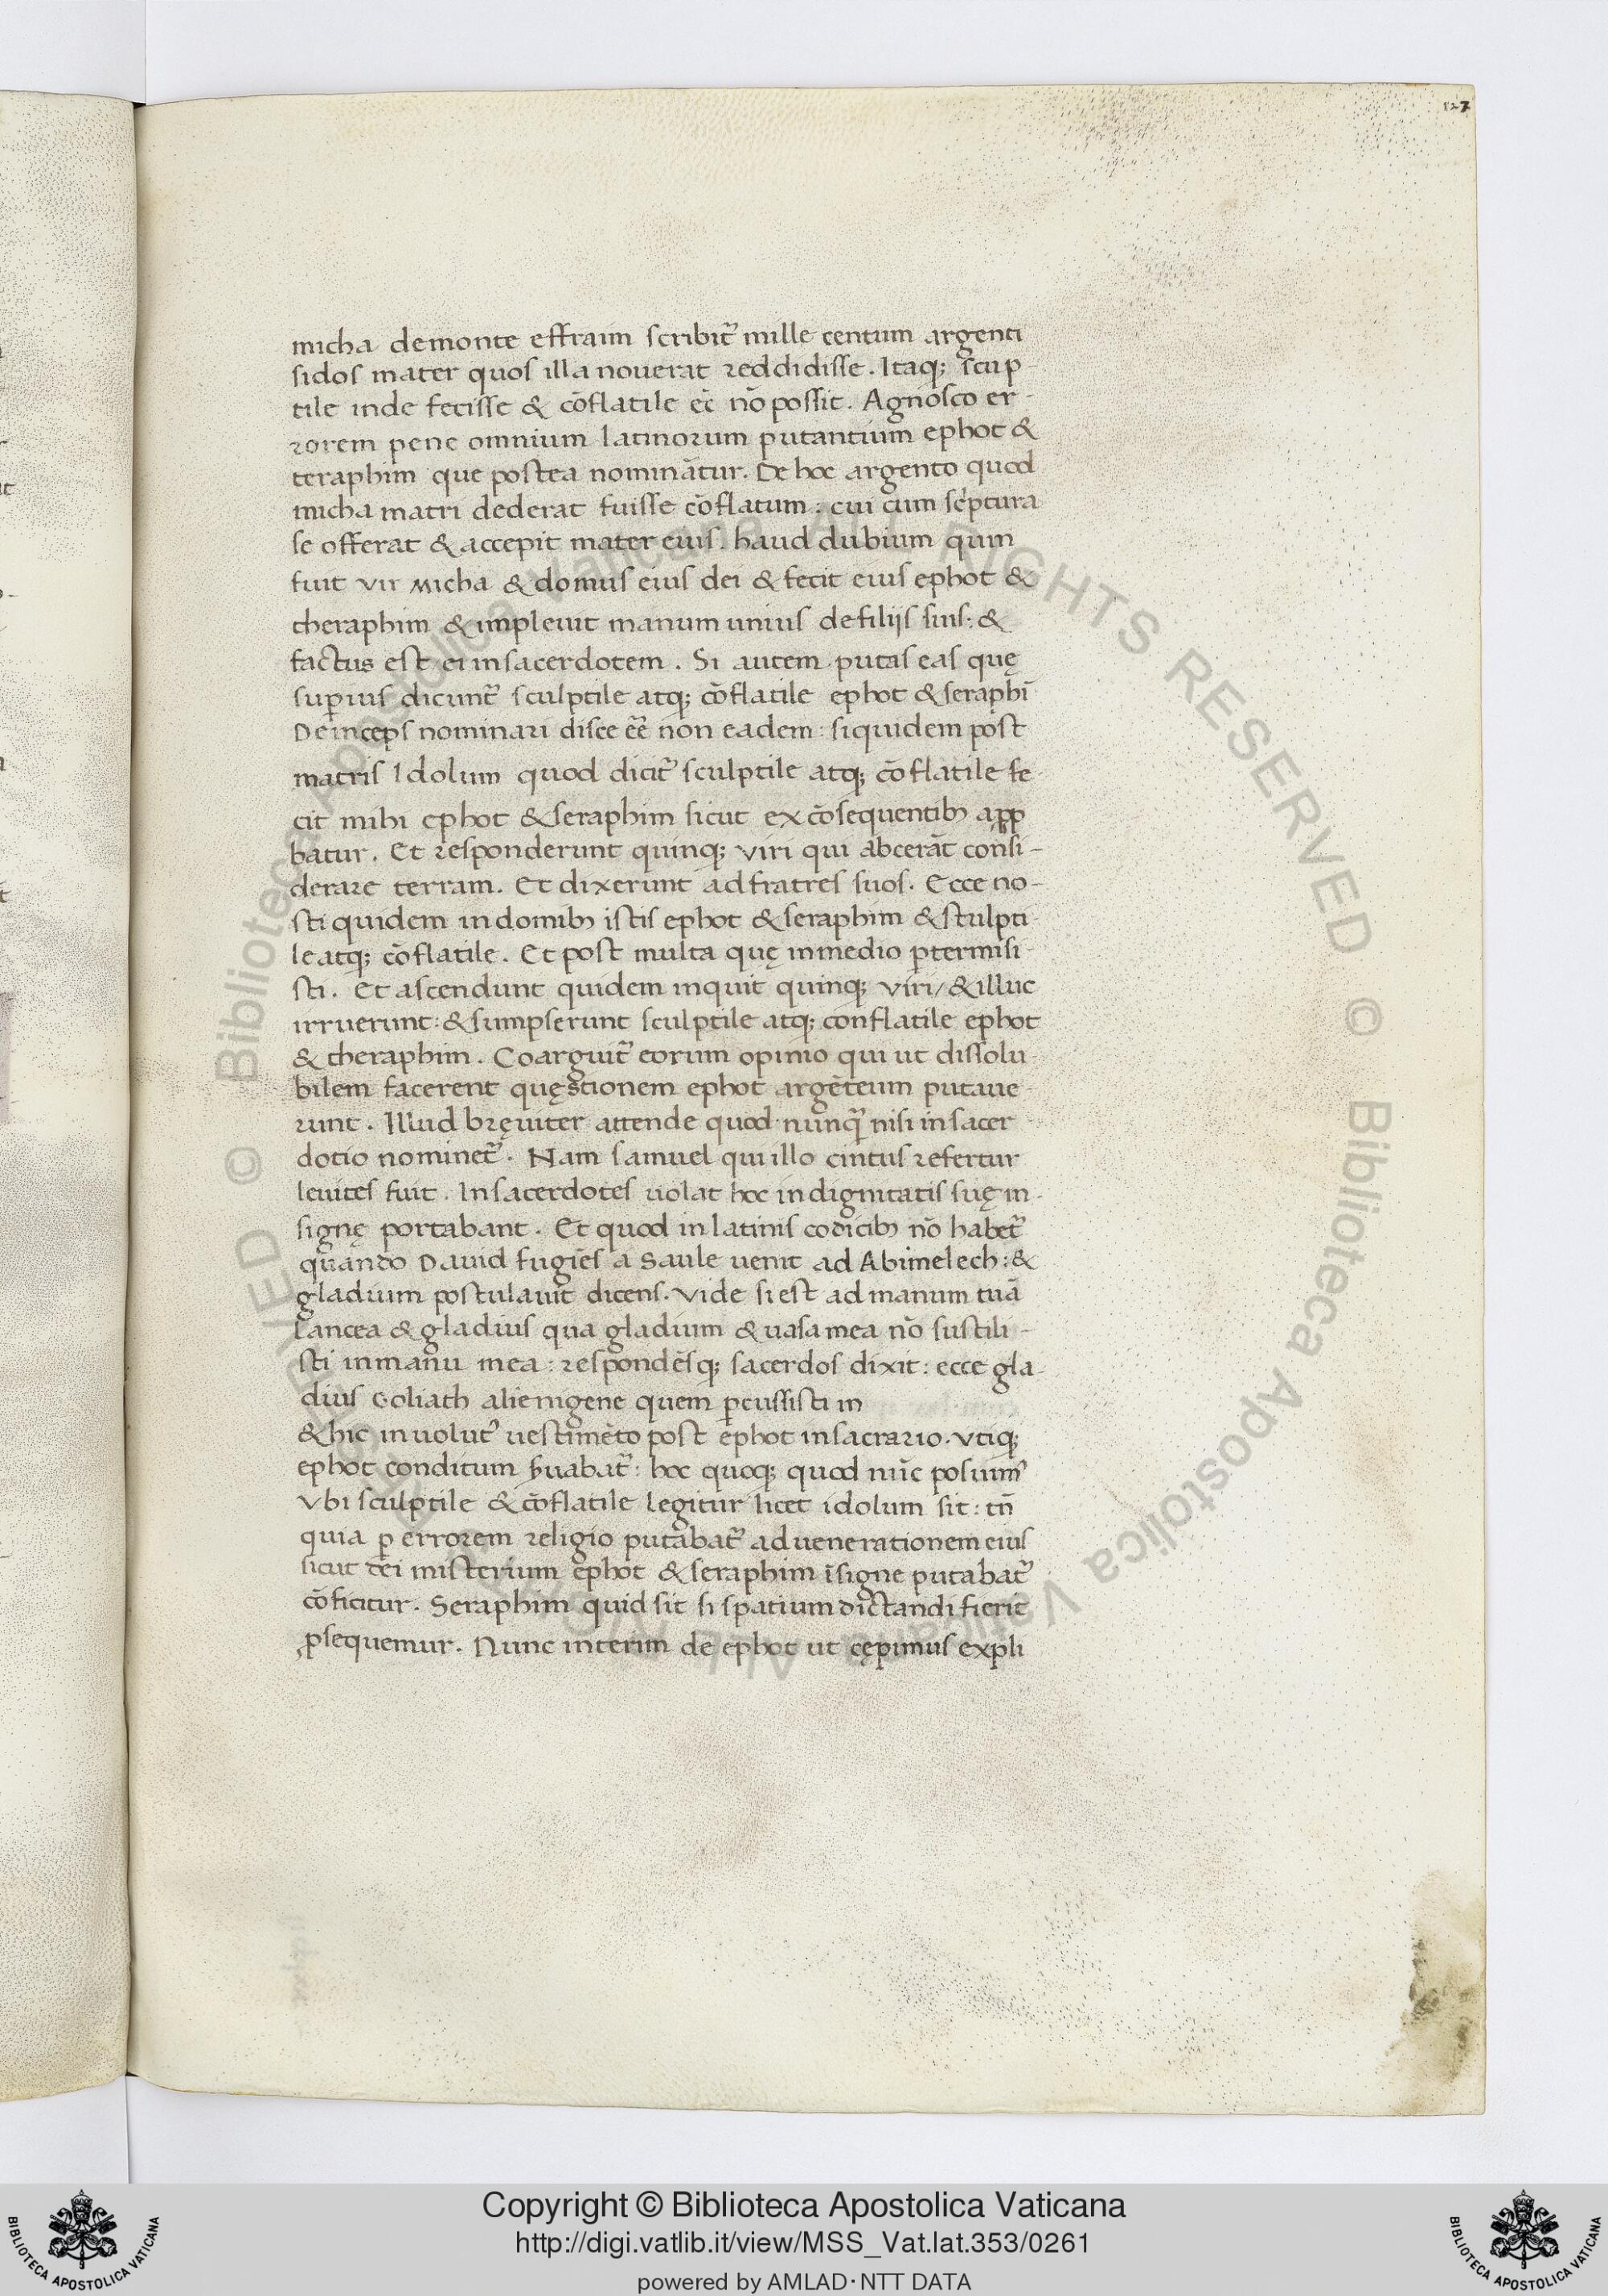 127
micha demonte effraim scribit᷑ mille centum argenti
sidos mater quos illa nouerat reddidisse. Itaq; scup-
tile inde fecisse & cōflatile eē nō possit. Agnosco er-
rorem pene omnium latinorum putantium ephot &
teraphim que postea nominātur. De hoc argento quod
micha matri dederat fuisse cōflatum: cui cum scͥptura
se offerat & accepit mater eius. haud dubium quin
fuit vir Micha & domus eius dei & fecit eius ephot &
theraphim & impleuit manum unius defilijs suis: &
factus est ei insacerdotem. Si autem putas eas quę
suꝑius dicunt᷑ sculptile atq; cōflatile ephot & seraphī
Deinceps nominari disce eē᷑ non eadem: siquidem post
matris Idolum quod dicit᷑ sculptile atq; cōflatile fe-
cit mihi ephot & seraphim sicut ex cōsequentibꝫ apꝓ
batur. Et responderunt quinq; viri qui abcerāt consi-
derare terram. Et dixerunt ad fratres suos. Ecce no-
sti quidem in domibꝫ istis ephot & seraphim & stulpti-
le atq; cōflatile. Et post multa quę inmedio p̄termisi-
sti. Et ascendunt quidem inquit quinq; viri/ & illuc
irruerunt: & sumpserunt sculptile atq; conflatile ephot
& theraphim. Coarguit᷑ eorum opinio qui ut dissolu-
bilem facerent quęstionem ephot argēteum putaue-
runt. Illud bręuiter attende quod nunq̄ nisi in sacer-
dotio nominet᷑. Nam samuel qui illo cintus refertur
leuites fuit. In sacerdotes uolat hoc in dignitatis suę in-
signę portabant. Et quod in latinis codicibꝫ nō habet᷑
quando Dauid fugiēs a Saule uenit ad Abimelech: &
gladium postulauit dicens. Vide si est ad manum tuā
Lancea & gladius qua gladium & uasa mea nō sustili-
sti inmanu mea: respondēsq; sacerdos dixit: ecce gla-
dius Goliath alienigene quem ꝑcussisti in
& hic inuolut᷒ uestimēto post ephot insacrario. Vtiq;
ephot conditum ẜuabat᷑: hoc quoq; quod nūc posuim᷒
Vbi sculptile & cōflatile legitur licet idolum sit: tn̄
quia ꝑ errorem religio putabat᷑ ad uenerationem eius
sicut dei misterium ephot & seraphim īsigne putabat᷑
cōficitur. Seraphim quid sit si spatium dictandi fierit
ꝓsequemur. Nunc interim de ephot ut cępimus expli
© Biblioteca Apostolica Vaticana ALL RIGHTS RESERVED
Copyright © Biblioteca Apostolica Vaticana
http://digi.vatlib.it/view/MSS_Vat.lat.353/0261
powered by AMLAD·NTT DATA
BIBLIOTECA APOSTOLICA VATICANA
BIBLIOTECA APOSTOLICA VATICANA